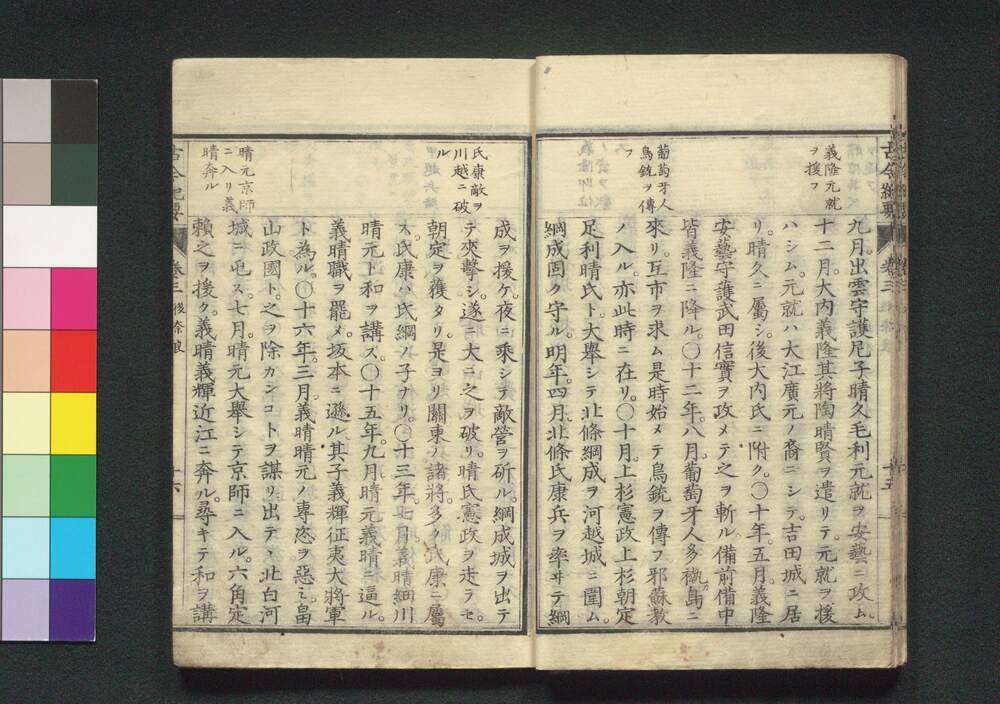 古今紀要
卷三
後奈良
十五
義隆元就
ヲ援フ
九月。出雲守護尼子晴久毛利元就ヲ安藝ニ攻ム。
十二月。大内義隆其將陶晴賢ヲ遣リテ。元就ヲ援
ハシム。元就ハ大江廣元ノ裔ニシテ。吉田城ニ居
リ。晴久ニ屬シ。後大内氏ニ附ク。〇十年。五月。義隆
安藝守護武田信實ヲ攻メテ之ヲ斬ル備前備中
皆義隆ニ降ル。〇十二年。八月。葡萄牙人多
島ニ
葡萄牙人
鳥銃ヲ傳
フ
來リ。互市ヲ求ム是時始メテ鳥銃ヲ傳フ邪蘇教
ノ入ル。亦此時ニ在リ。〇十月。上杉憲政上杉朝定
足利晴氏ト。大擧シテ北條綱成ヲ河越城ニ圍ム。
綱成固ク守ル。明年。四月。北條氏康兵ヲ率ヰテ綱
成ヲ援ケ。夜ニ乘シテ敵營ヲ斫ル。綱成城ヲ出テ
氏康敵ヲ
川越ニ破
ル
テ夾擊シ。遂ニ大ニ之ヲ破リ。晴氏憲政ヲ走ラセ。
朝定ヲ獲タリ。是ヨリ關東ノ諸將。多ク氏康ニ屬
ス。氏康ハ氏綱ノ子ナリ。〇十三年。七月義晴細川
晴元ト和ヲ講ス。〇十五年。九月晴元義晴ニ逼ル。
義晴職ヲ罷メ坂本ニ遜ル其子義輝征夷大將軍
ト為ル。〇十六年。三月。義晴晴元ノ專恣ヲ惡ミ。畠
山政國ト。之ヲ除カンコトヲ謀リ出テヽ北白河
晴元京師
ニ入リ義
晴奔ル
城ニ屯ス。七月。晴元大擧シテ京師ニ入ル。六角定
賴之ヲ援ク。義晴義輝近江ニ奔ル。尋キテ和ヲ講
古今紀要
卷三
後奈良
十六